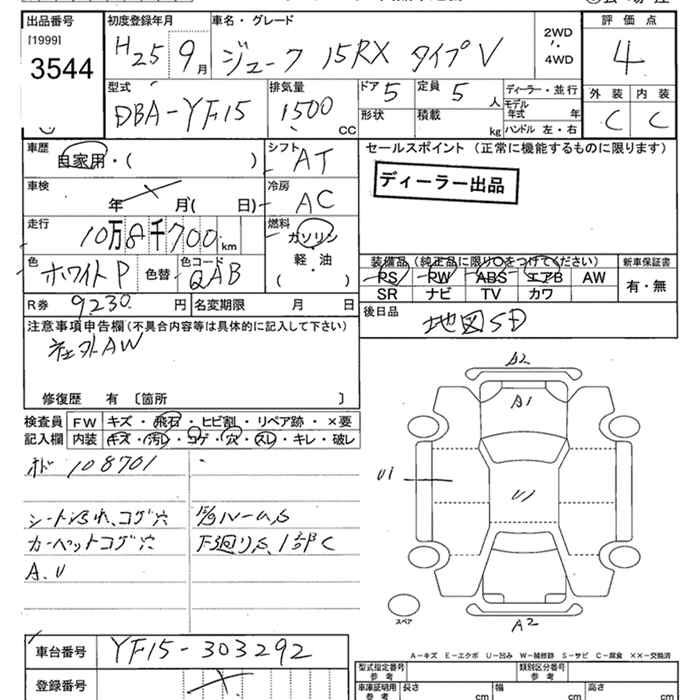 出品番号 初度登録年月 車名・グレード 2WD ・ 4WD 評価点
[1999]
3544 H25 9月 ジューク 15RX タイプV 4
型式 排気量 ドア 5 定員 5 人 ディーラー・並行 外装 内装
DBA-YF15 1500 CC 形状 積載 kg モデル年式 年 C C
ハンドル 左・右
車歴 自家用・( ) シフト AT セールスポイント (正常に機能するものに限ります)
車検 年 月( 日) 冷房 AC ディーラー出品
走行 10万8千700 km 燃料 ガソリン・軽油 ( )
色 ホワイトP 色替 色コード QAB 装備品 (純正品に限り○をつけてください) 新車保証書
PS PW ABS エアB AW 有・無
SR ナビ TV カワ
R券 9230 円 名変期限 月 日 後日品 地図SD
注意事項申告欄(不具合内容等は具体的に記入して下さい)
社外AW
修復歴 有 〔箇所 〕
検査員 FW キズ・飛石・ヒビ割・リペア跡・×要
記入欄 内装 キズ・汚レ・コゲ・穴・スレ・キレ・破レ
オド 108701
シート汚れ、コゲ穴
カーペットコゲ穴 下廻りS、1部C
A.U
A2
A1
U1
U
A2
スペア
A-キズ E-エクボ U-凹み W-補修跡 S-サビ C-腐食 XX-交換済
車台番号 YF15-303292
型式指定番号 参考 類別区分番号 参考
登録番号 車庫証明用 参考 長さ cm 幅 cm 高さ cm